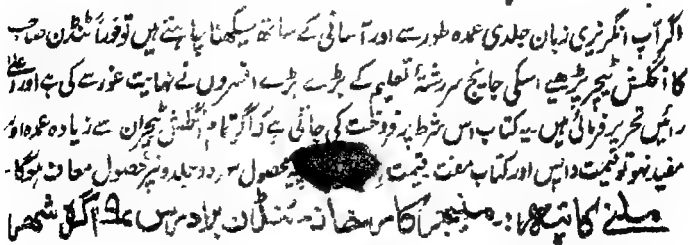 اگر آپ انگریزی زبان جلدی عمدہ طور سے اور آسانی کے ساتھ سیکھنا چاہتے ہیں تو فوراً ٹنڈن صاحب
کا انگلش ٹیچر پڑھیے اسکی جانچ سررشتۂ تعلیم کے بڑے بڑے افسروں نے نہایت غور سے کی ہے اور اعلیٰ
رائیں تحریر فرمائی ہیں۔ یہ کتاب اس شرط پر فروخت کی جاتی ہے کہ اگر تمام انگلش ٹیچران سے زیادہ عمدہ اور
مفید نہو تو قیمت واپس اور کتاب مفت قیمت محصول دو جلدونپر محصول معاف ہوگا۔
ملنے کا پتہ :۔ منیجر کارخانہ ٹنڈن برادرس آگرہ شہر